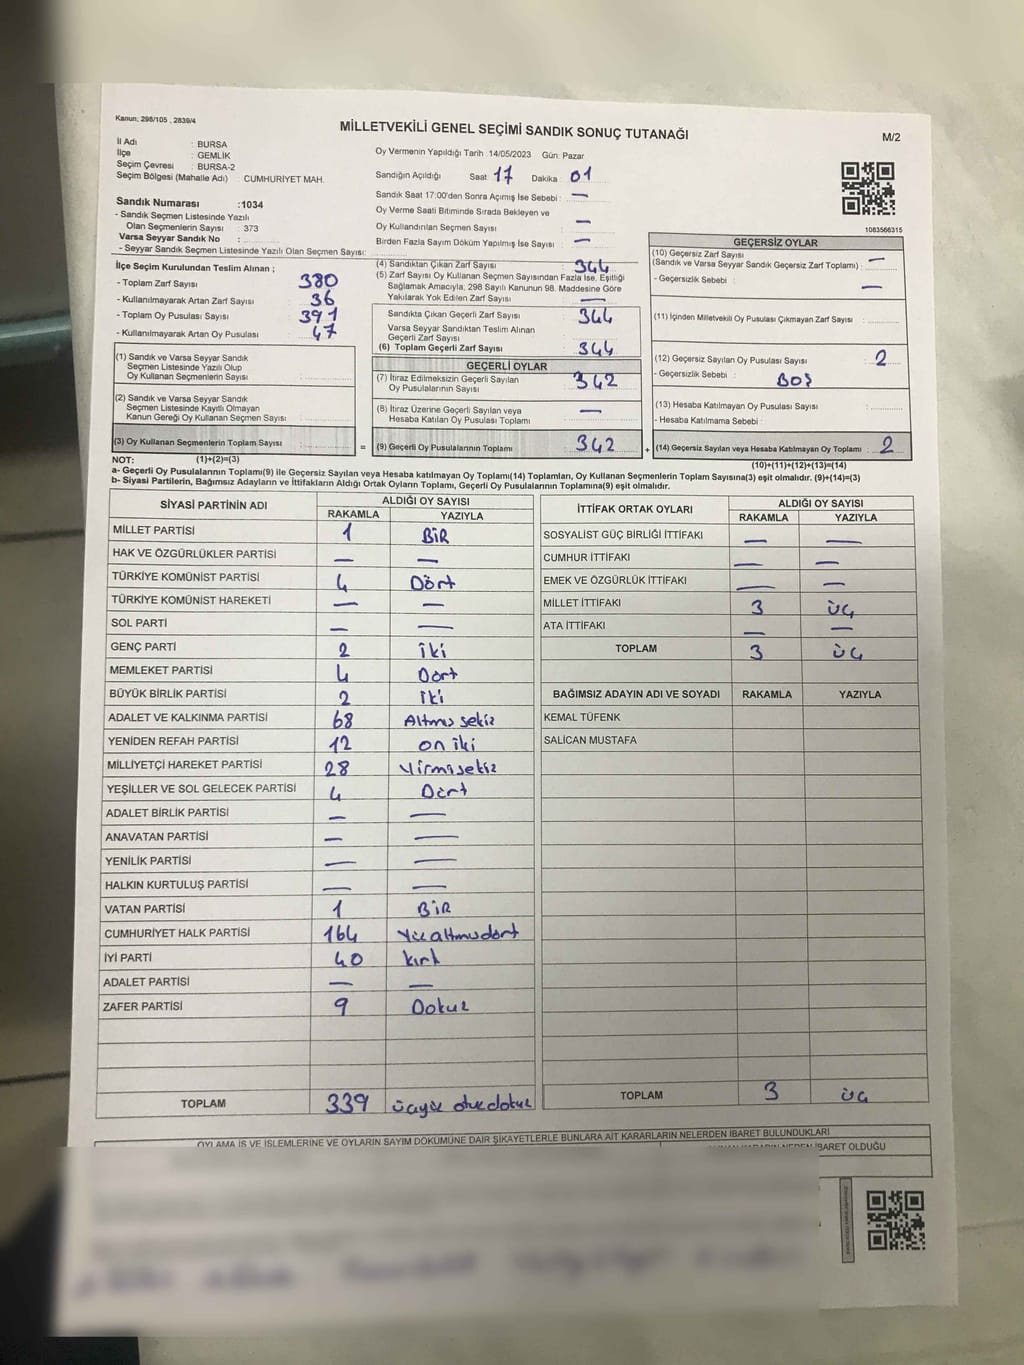 Kanun: 298/105 , 2839/4
MİLLETVEKİLİ GENEL SEÇİMİ SANDIK SONUÇ TUTANAĞI
M/2
İl Adı : BURSA
İlçe : GEMLİK
Seçim Çevresi : BURSA-2
Seçim Bölgesi (Mahalle Adı) : CUMHURİYET MAH.
Oy Vermenin Yapıldığı Tarih :14/05/2023 Gün: Pazar
Sandığın Açıldığı Saat: 17 Dakika: 01
Sandık Saat 17:00'den Sonra Açılmış İse Sebebi : —
Oy Verme Saati Bitiminde Sırada Bekleyen ve
Oy Kullandırılan Seçmen Sayısı : —
Birden Fazla Sayım Döküm Yapılmış İse Sayısı : —
1083566315
Sandık Numarası :1034
- Sandık Seçmen Listesinde Yazılı
Olan Seçmenlerin Sayısı : 373
Varsa Seyyar Sandık No :
- Seyyar Sandık Seçmen Listesinde Yazılı Olan Seçmen Sayısı:
İlçe Seçim Kurulundan Teslim Alınan ;
- Toplam Zarf Sayısı : 380
- Kullanılmayarak Artan Zarf Sayısı : 36
- Toplam Oy Pusulası Sayısı : 391
- Kullanılmayarak Artan Oy Pusulası : 47
(1) Sandık ve Varsa Seyyar Sandık
Seçmen Listesinde Yazılı Olup
Oy Kullanan Seçmenlerin Sayısı :
(2) Sandık ve Varsa Seyyar Sandık
Seçmen Listesinde Kayıtlı Olmayan
Kanun Gereği Oy Kullanan Seçmen Sayısı :
(3) Oy Kullanan Seçmenlerin Toplam Sayısı :
(4) Sandıktan Çıkan Zarf Sayısı : 344
(5) Zarf Sayısı Oy Kullanan Seçmen Sayısından Fazla İse, Eşitliği
Sağlamak Amacıyla, 298 Sayılı Kanunun 98. Maddesine Göre
Yakılarak Yok Edilen Zarf Sayısı : —
Sandıkta Çıkan Geçerli Zarf Sayısı : 344
Varsa Seyyar Sandıktan Teslim Alınan
Geçerli Zarf Sayısı :
(6) Toplam Geçerli Zarf Sayısı : 344
GEÇERLİ OYLAR
(7) İtiraz Edilmeksizin Geçerli Sayılan
Oy Pusulalarının Sayısı : 342
(8) İtiraz Üzerine Geçerli Sayılan veya
Hesaba Katılan Oy Pusulası Toplamı : —
= (9) Geçerli Oy Pusulalarının Toplamı : 342
GEÇERSİZ OYLAR
(10) Geçersiz Zarf Sayısı
(Sandık ve Varsa Seyyar Sandık Geçersiz Zarf Toplamı) : —
- Geçersizlik Sebebi : —
(11) İçinden Milletvekili Oy Pusulası Çıkmayan Zarf Sayısı :
(12) Geçersiz Sayılan Oy Pusulası Sayısı : 2
- Geçersizlik Sebebi : BOŞ
(13) Hesaba Katılmayan Oy Pusulası Sayısı :
- Hesaba Katılmama Sebebi :
+ (14) Geçersiz Sayılan veya Hesaba Katılmayan Oy Toplamı : 2
NOT: (1)+(2)=(3)
(10)+(11)+(12)+(13)=(14)
a- Geçerli Oy Pusulalarının Toplamı(9) ile Geçersiz Sayılan veya Hesaba katılmayan Oy Toplamı(14) Toplamları, Oy Kullanan Seçmenlerin Toplam Sayısına(3) eşit olmalıdır. (9)+(14)=(3)
b- Siyasi Partilerin, Bağımsız Adayların ve İttifakların Aldığı Ortak Oyların Toplamı, Geçerli Oy Pusulalarının Toplamına(9) eşit olmalıdır.
SİYASİ PARTİNİN ADI ALDIĞI OY SAYISI
RAKAMLA YAZIYLA
MİLLET PARTİSİ 1 BİR
HAK VE ÖZGÜRLÜKLER PARTİSİ — —
TÜRKİYE KOMÜNİST PARTİSİ 4 Dört
TÜRKİYE KOMÜNİST HAREKETİ — —
SOL PARTİ — —
GENÇ PARTİ 2 iki
MEMLEKET PARTİSİ 4 Dört
BÜYÜK BİRLİK PARTİSİ 2 iki
ADALET VE KALKINMA PARTİSİ 68 Altmış sekiz
YENİDEN REFAH PARTİSİ 12 on iki
MİLLİYETÇİ HAREKET PARTİSİ 28 Yirmisekiz
YEŞİLLER VE SOL GELECEK PARTİSİ 4 Dört
ADALET BİRLİK PARTİSİ — —
ANAVATAN PARTİSİ — —
YENİLİK PARTİSİ — —
HALKIN KURTULUŞ PARTİSİ — —
VATAN PARTİSİ 1 BİR
CUMHURİYET HALK PARTİSİ 164 Yüzaltmışdört
İYİ PARTİ 40 kırk
ADALET PARTİSİ — —
ZAFER PARTİSİ 9 Dokuz
TOPLAM 339 üçyüz otuzdokuz
İTTİFAK ORTAK OYLARI ALDIĞI OY SAYISI
RAKAMLA YAZIYLA
SOSYALİST GÜÇ BİRLİĞİ İTTİFAKI — —
CUMHUR İTTİFAKI — —
EMEK VE ÖZGÜRLÜK İTTİFAKI — —
MİLLET İTTİFAKI 3 üç
ATA İTTİFAKI — —
TOPLAM 3 üç
BAĞIMSIZ ADAYIN ADI VE SOYADI RAKAMLA YAZIYLA
KEMAL TÜFENK
SALİCAN MUSTAFA
TOPLAM 3 üç
OYLAMA İŞ VE İŞLEMLERİNE VE OYLARIN SAYIM DÖKÜMÜNE DAİR ŞİKAYETLERLE BUNLARA AİT KARARLARIN NELERDEN İBARET BULUNDUKLARI
İBARET OLDUĞU